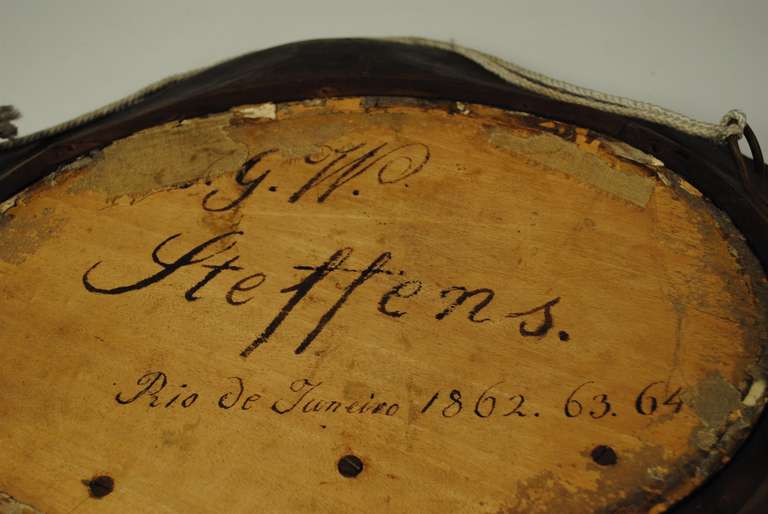 G. W.
Steffens.
Rio de Janeiro 1862. 63. 64